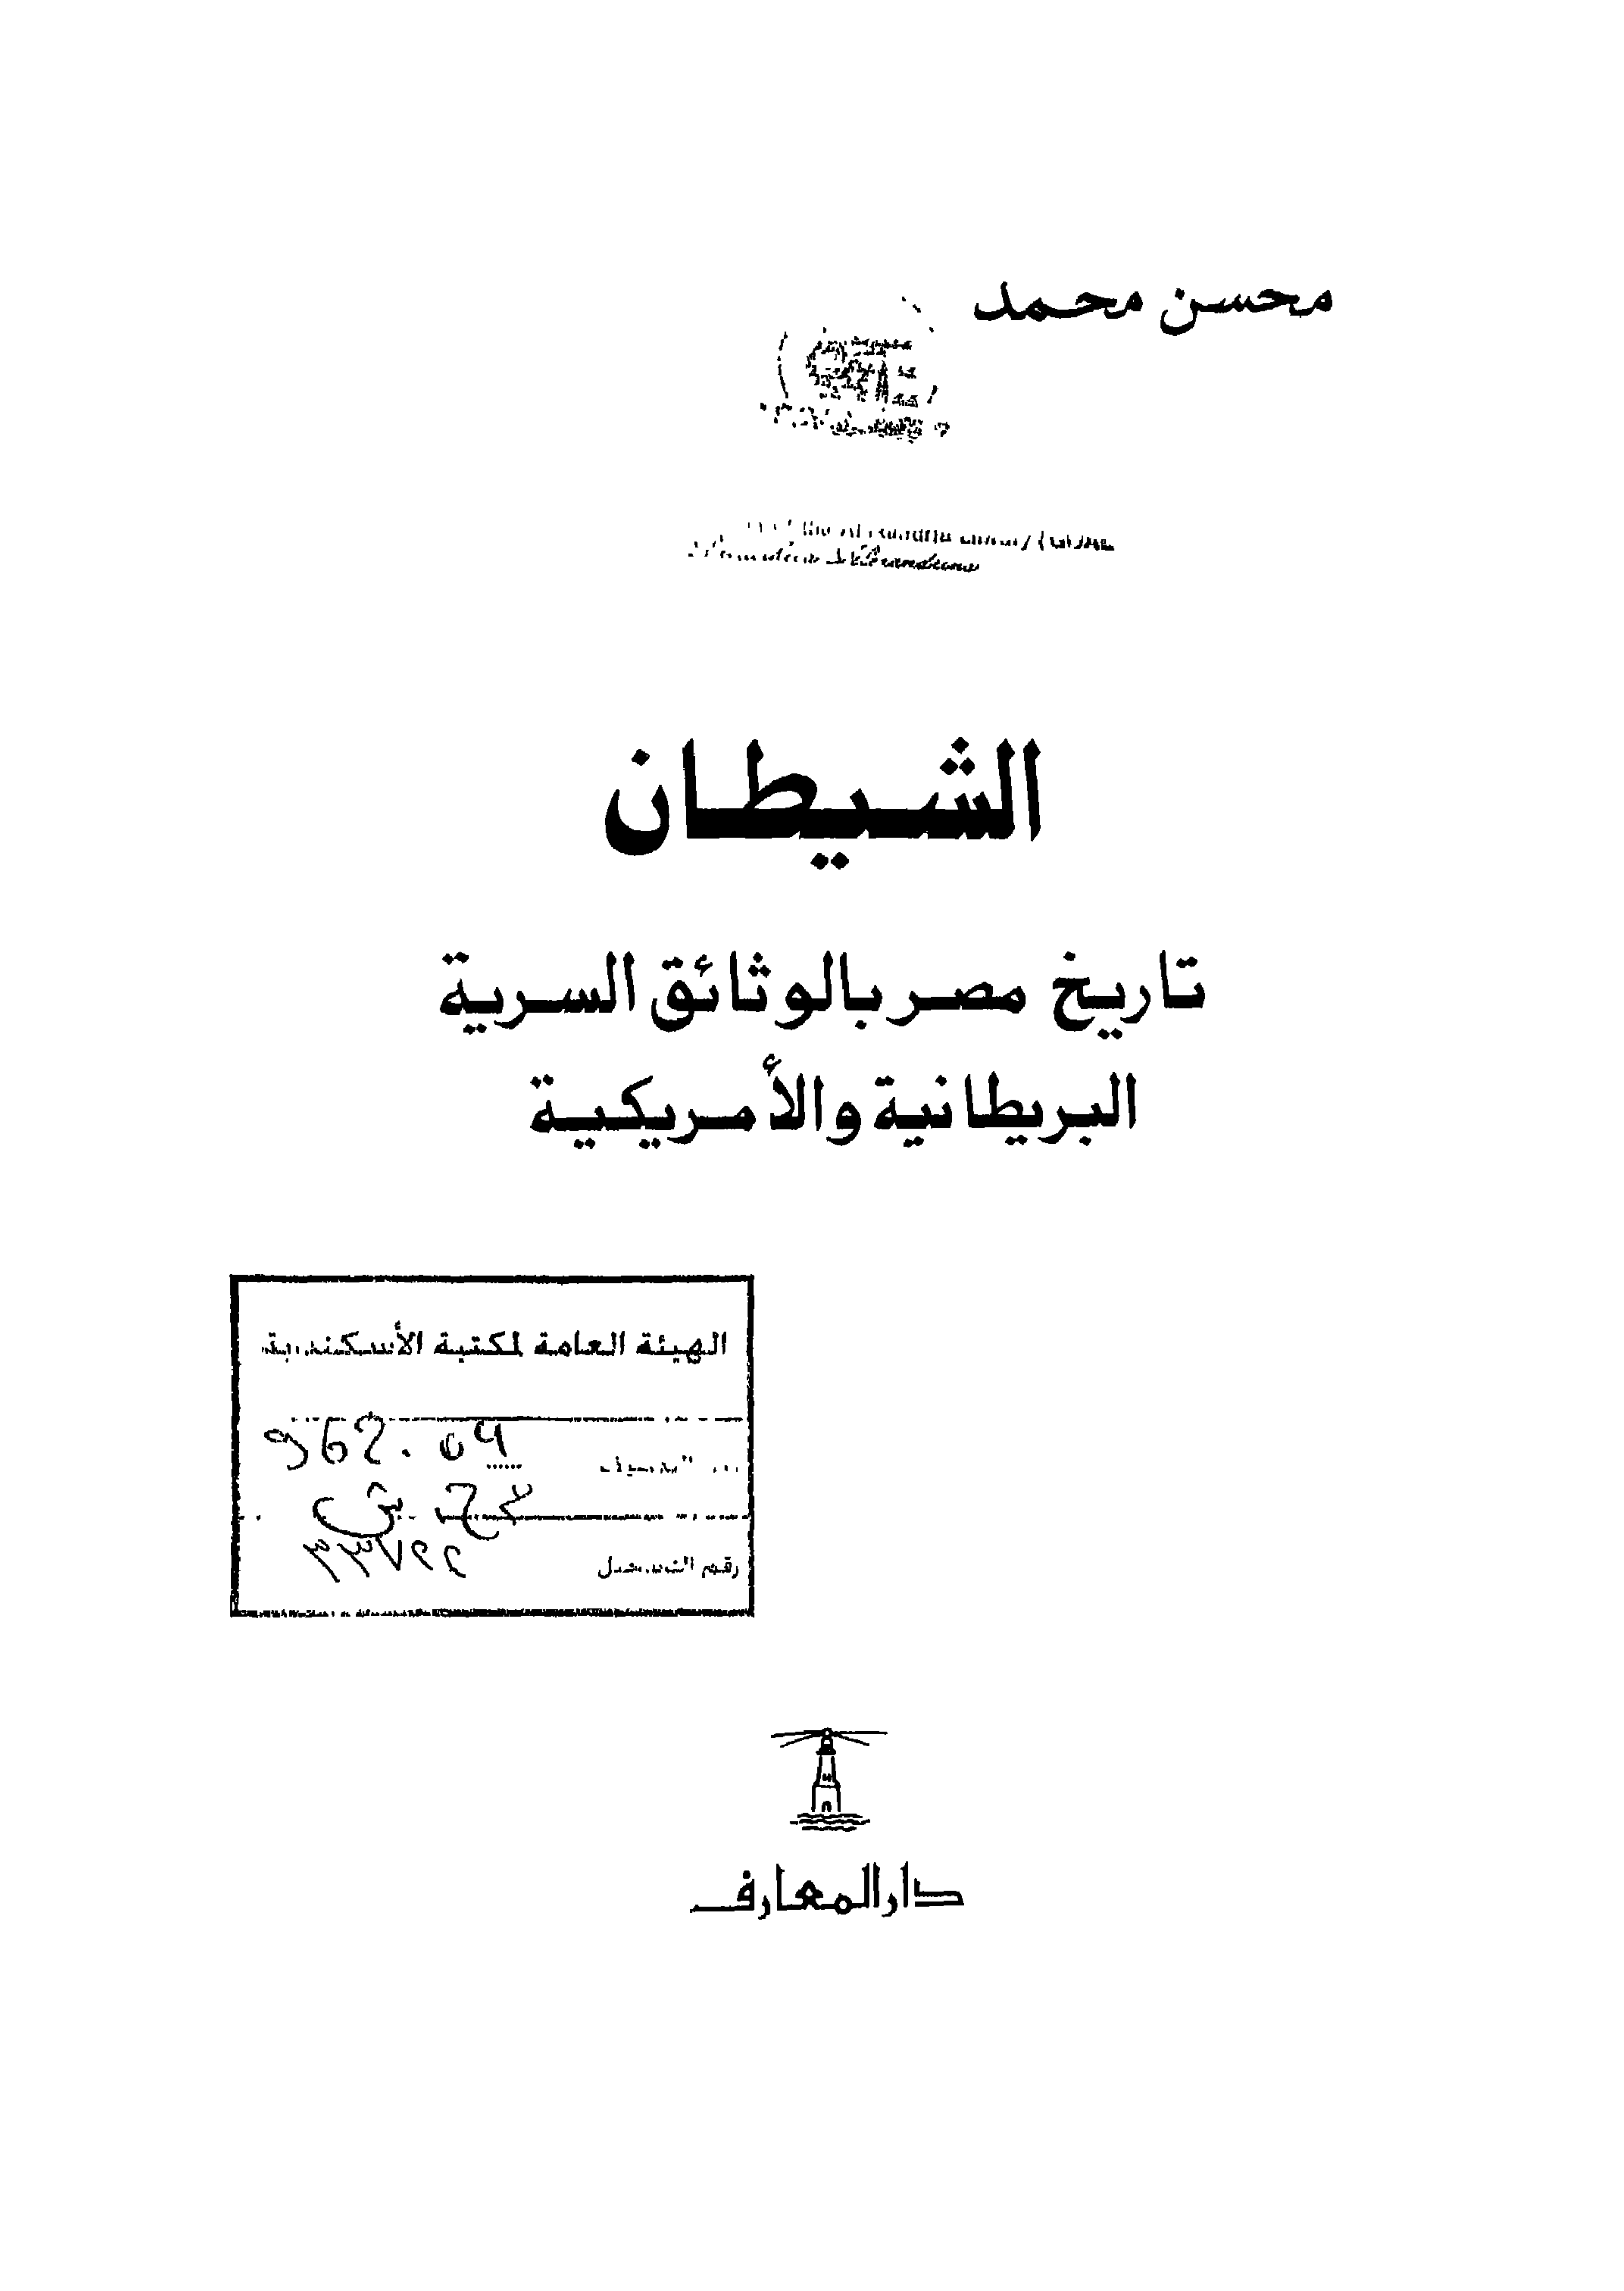 محسن محمد
الشيطان
تاريخ مصر بالوثائق السرية
البريطانية والأمريكية
الهيئة العامة لمكتبة الأسكندرية
962.04
رقم التسجيل
دار المعارف